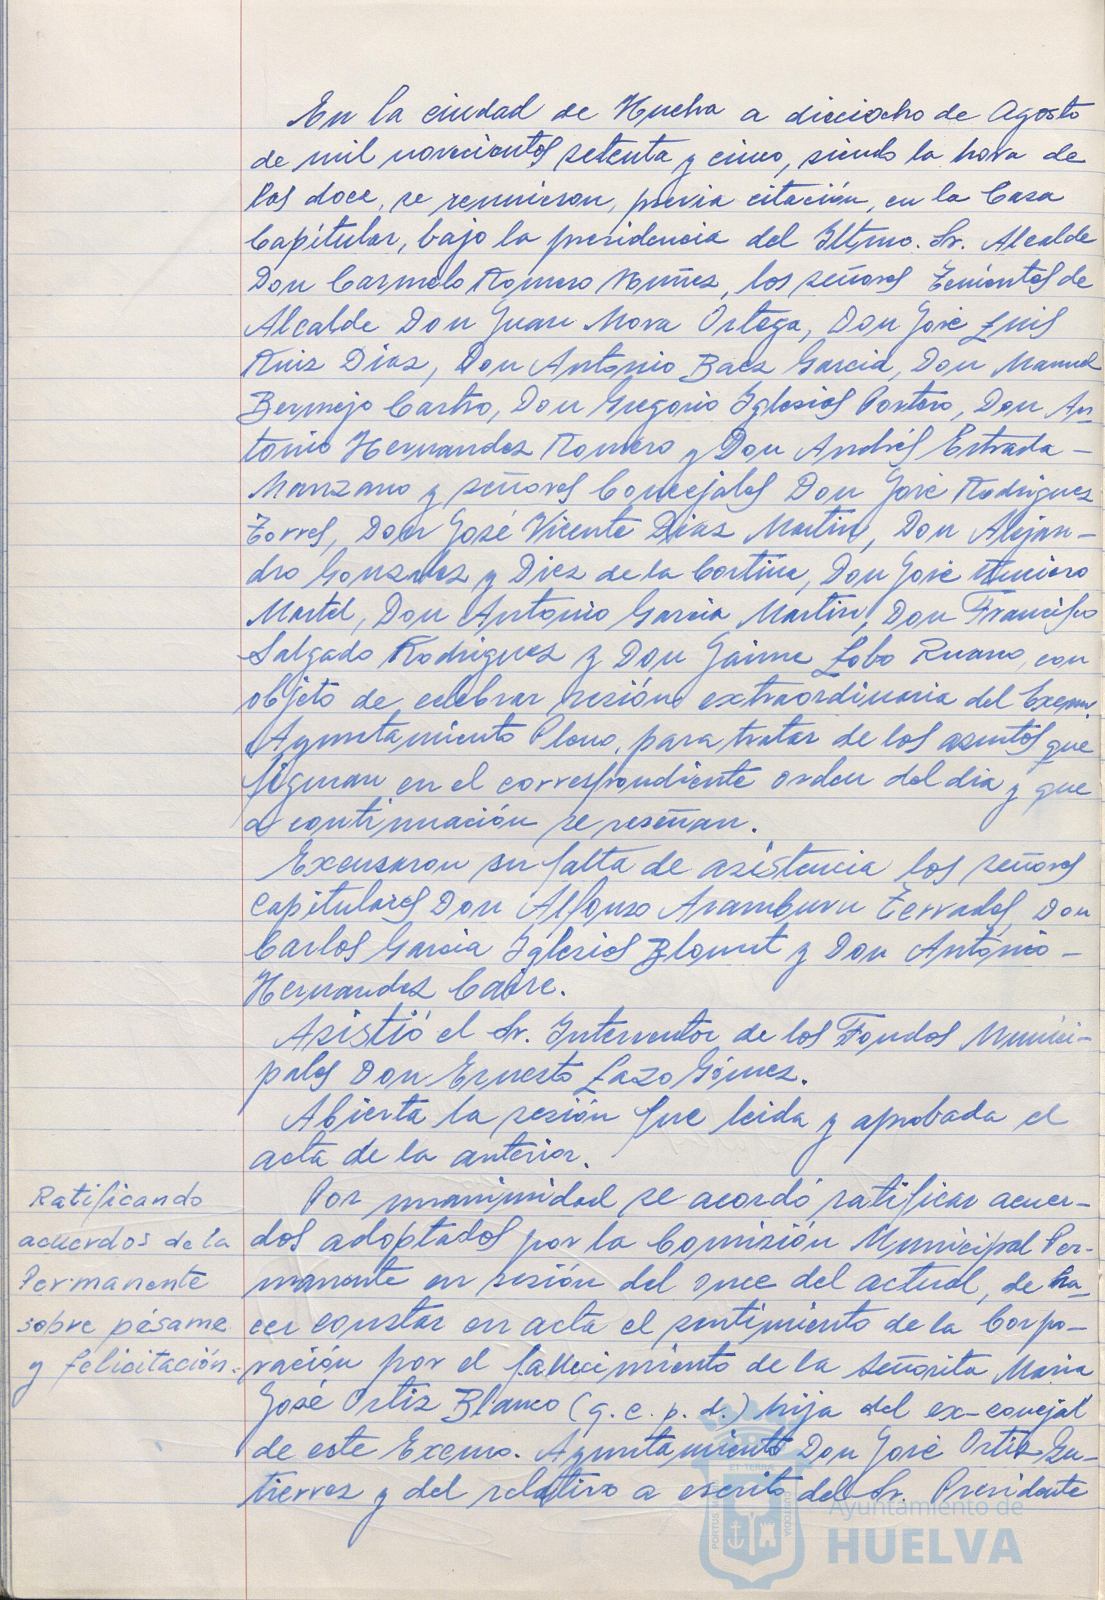 En la ciudad de Huelva a dieciocho de Agosto
de mil novecientos setenta y cinco, siendo la hora de
las doce, se reunieron, previa citación, en la Casa
Capitular, bajo la presidencia del Iltmo. Sr. Alcalde
Don Carmelo Romero Nuñez, los señores Tenientes de
Alcalde Don Juan Mora Ortega, Don José Luis
Ruiz Diaz, Don Antonio Baez Garcia, Don Manuel
Bermejo Castro, Don Gregorio Iglesias Portero, Don An-
tonio Hernandez Romero y Don Andrés Estrada
Manzano y señores Concejales Don José Rodriguez
Torres, Don José Vicente Diaz Martin, Don Alejan-
dro Gonzalez y Diez de la Cortina, Don José
Martel, Don Antonio Garcia Martin, Don Francisco
Salgado Rodriguez y Don Jaime Lobo Ruano, con
objeto de celebrar sesión extraordinaria del Excmo.
Ayuntamiento Pleno, para tratar de los asuntos que
figuran en el correspondiente orden del dia y que
a continuación se reseñan.
Excusaron su falta de asistencia los señores
capitulares Don Alfonso Aramburu Terrades, Don
Carlos Garcia Iglesias Blount y Don Antonio
Hernandez Caire.
Asistió el Sr. Interventor de los Fondos Munici-
pales Don Ernesto Lazo Gómez.
Abierta la sesión fue leida y aprobada el
acta de la anterior.
Ratificando
acuerdos de la
Permanente
sobre pésame
y felicitación.
Por unanimidad se acordó ratificar acuer-
dos adoptados por la Comisión Municipal Per-
manente en sesión del once del actual, de ha-
cer constar en acta el sentimiento de la Corpo-
ración por el fallecimiento de la señorita Maria
José Ortiz Blanco (q. e. p. d.) hija del ex-concejal
de este Excmo. Ayuntamiento Don José Ortiz Gu-
tierrez y del relativo a escrito del Sr. Presidente
PORTUS
ET TERRAE
CUSTODIA
Ayuntamiento de
HUELVA